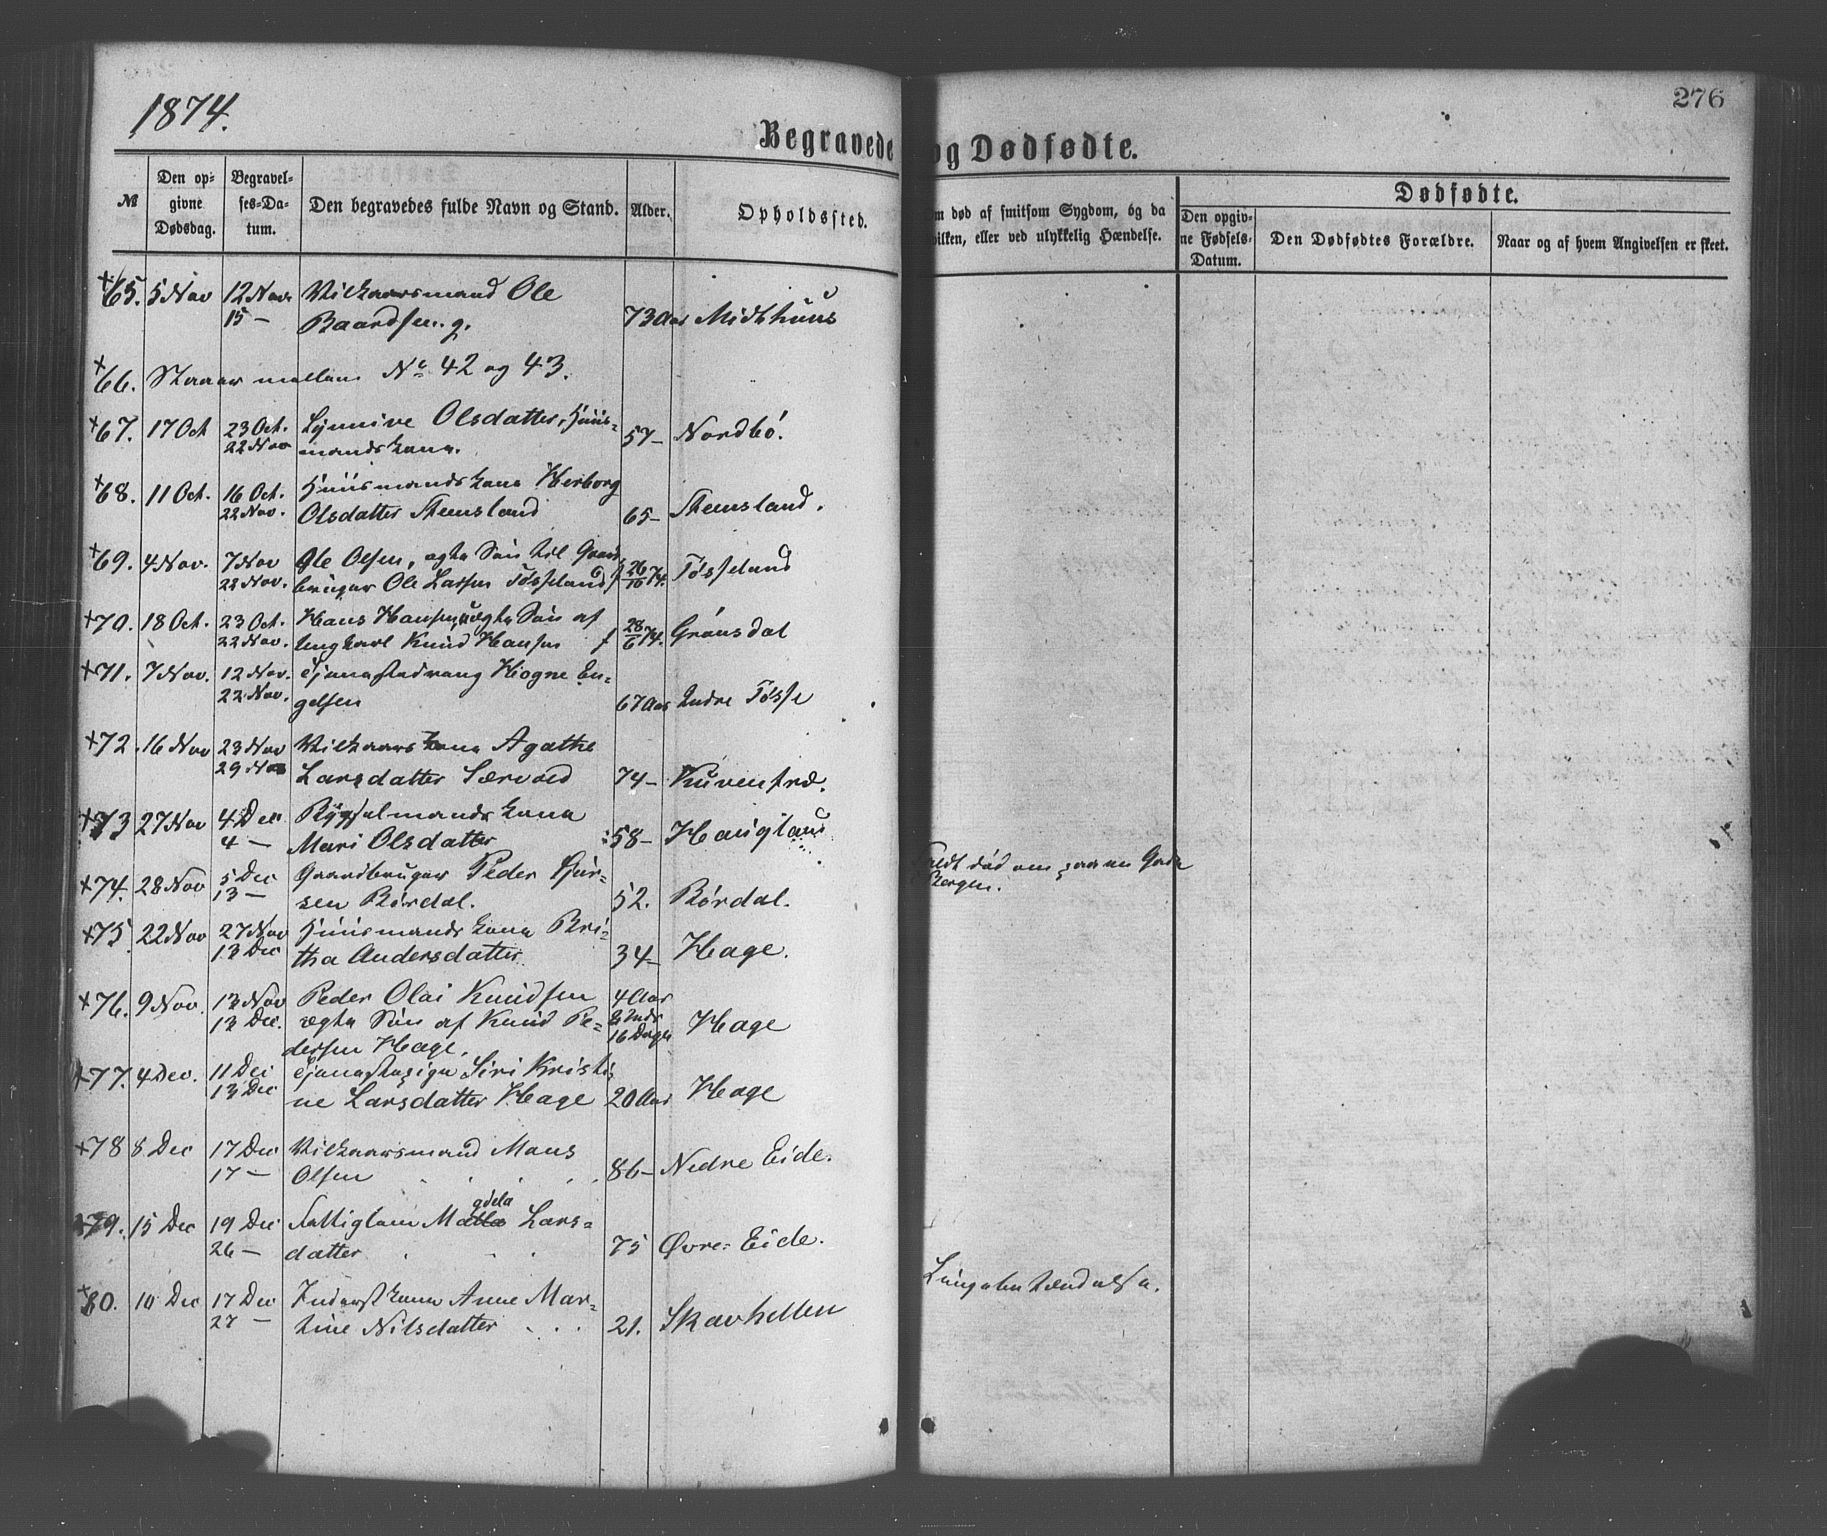 276
1874.
Begravede og Dødfødte.
№
Den opgivne Dødsdag.
Begravelses-Datum.
Den begravedes fulde Navn og Stand.
Alder.
Opholdssted.
m død af smitsom Sygdom, og da
vilken, eller ved ulykkelig Hændelse.
Dødfødte.
Den opgivne Fødsels-Datum.
Den Dødfødtes Forældre.
Naar og af hvem Angivelsen er skeet.
+65. 5 Nov 12 Nov Vilkaarsmand Ole
15 — Baardsen. g. 73 Aar Midthuus
+66. Staaar mellem No 42 og 43.
+67. 17 Oct 23 Oct. Lynnive Olsdatter, Huus-
22 Nov mandskona. 57 — Nordbö.
+68. 11 Oct. 16 Oct. Huusmandskone Herborg
22 Nov. Olsdatter Stensland 65 — Stensland.
+69. 4 Nov. 7 Nov Ole Olsen, ægte Søn til Gaard-
22 Nov. bruger Ole Larsen Tøsseland f 26/10 74. Tøsseland
+70. 18 Oct. 23 Oct. Hans Hansen, uægte Søn af
22 Nov. Ungkarl Knud Hansen f 28/6 74. Grönsdal
+71. 7 Nov. 12 Nov. Tjenestedreng Hogne En-
22 Nov. gelsen 67 Aar Indre Tøsse
+72. 16 Nov 23 Nov Vilkaarskone Agathe
29 Nov Larsdatter Særvold 74 — Kuventræ.
+73 27 Nov 4 Dec Bygselmandskona
4 — Mari Olsdatter 58 — Haugland
+74. 28 Nov 5 Dec Gaardbruger Peder
13 — sen Børdal. 52. Børdal.
død om
Bergen.
+75. 22 Nov 27 Nov Huusmandskona Bri-
13 Dec tha Andersdatter 34 — Hage.
+76. 9 Nov. 13 Nov Peder Olai Knudsen 4 Aar
13 Dec. ægte Søn af Knud Pe- 16 Dage Hage
dersen Hage.
+77. 4 Dec. 11 Dec Tjenestepige Siri Kristi-
13 Dec ne Larsdatter Hage 20 Aar Hage
+78 8 Dec 17 Dec Vilkaarsmand Mons
17 — Olsen 86 — Nedre Eide.
gdela
+79. 15 Dec 19 Dec Fattiglem Matla Lars-
26 — datter 75 Øvre-Eide.
+80. 10 Dec 17 Dec Inderstkona Anne Mar-
27 — tine Nilsdatter 21. Skavhellen
Lungebetændelse.